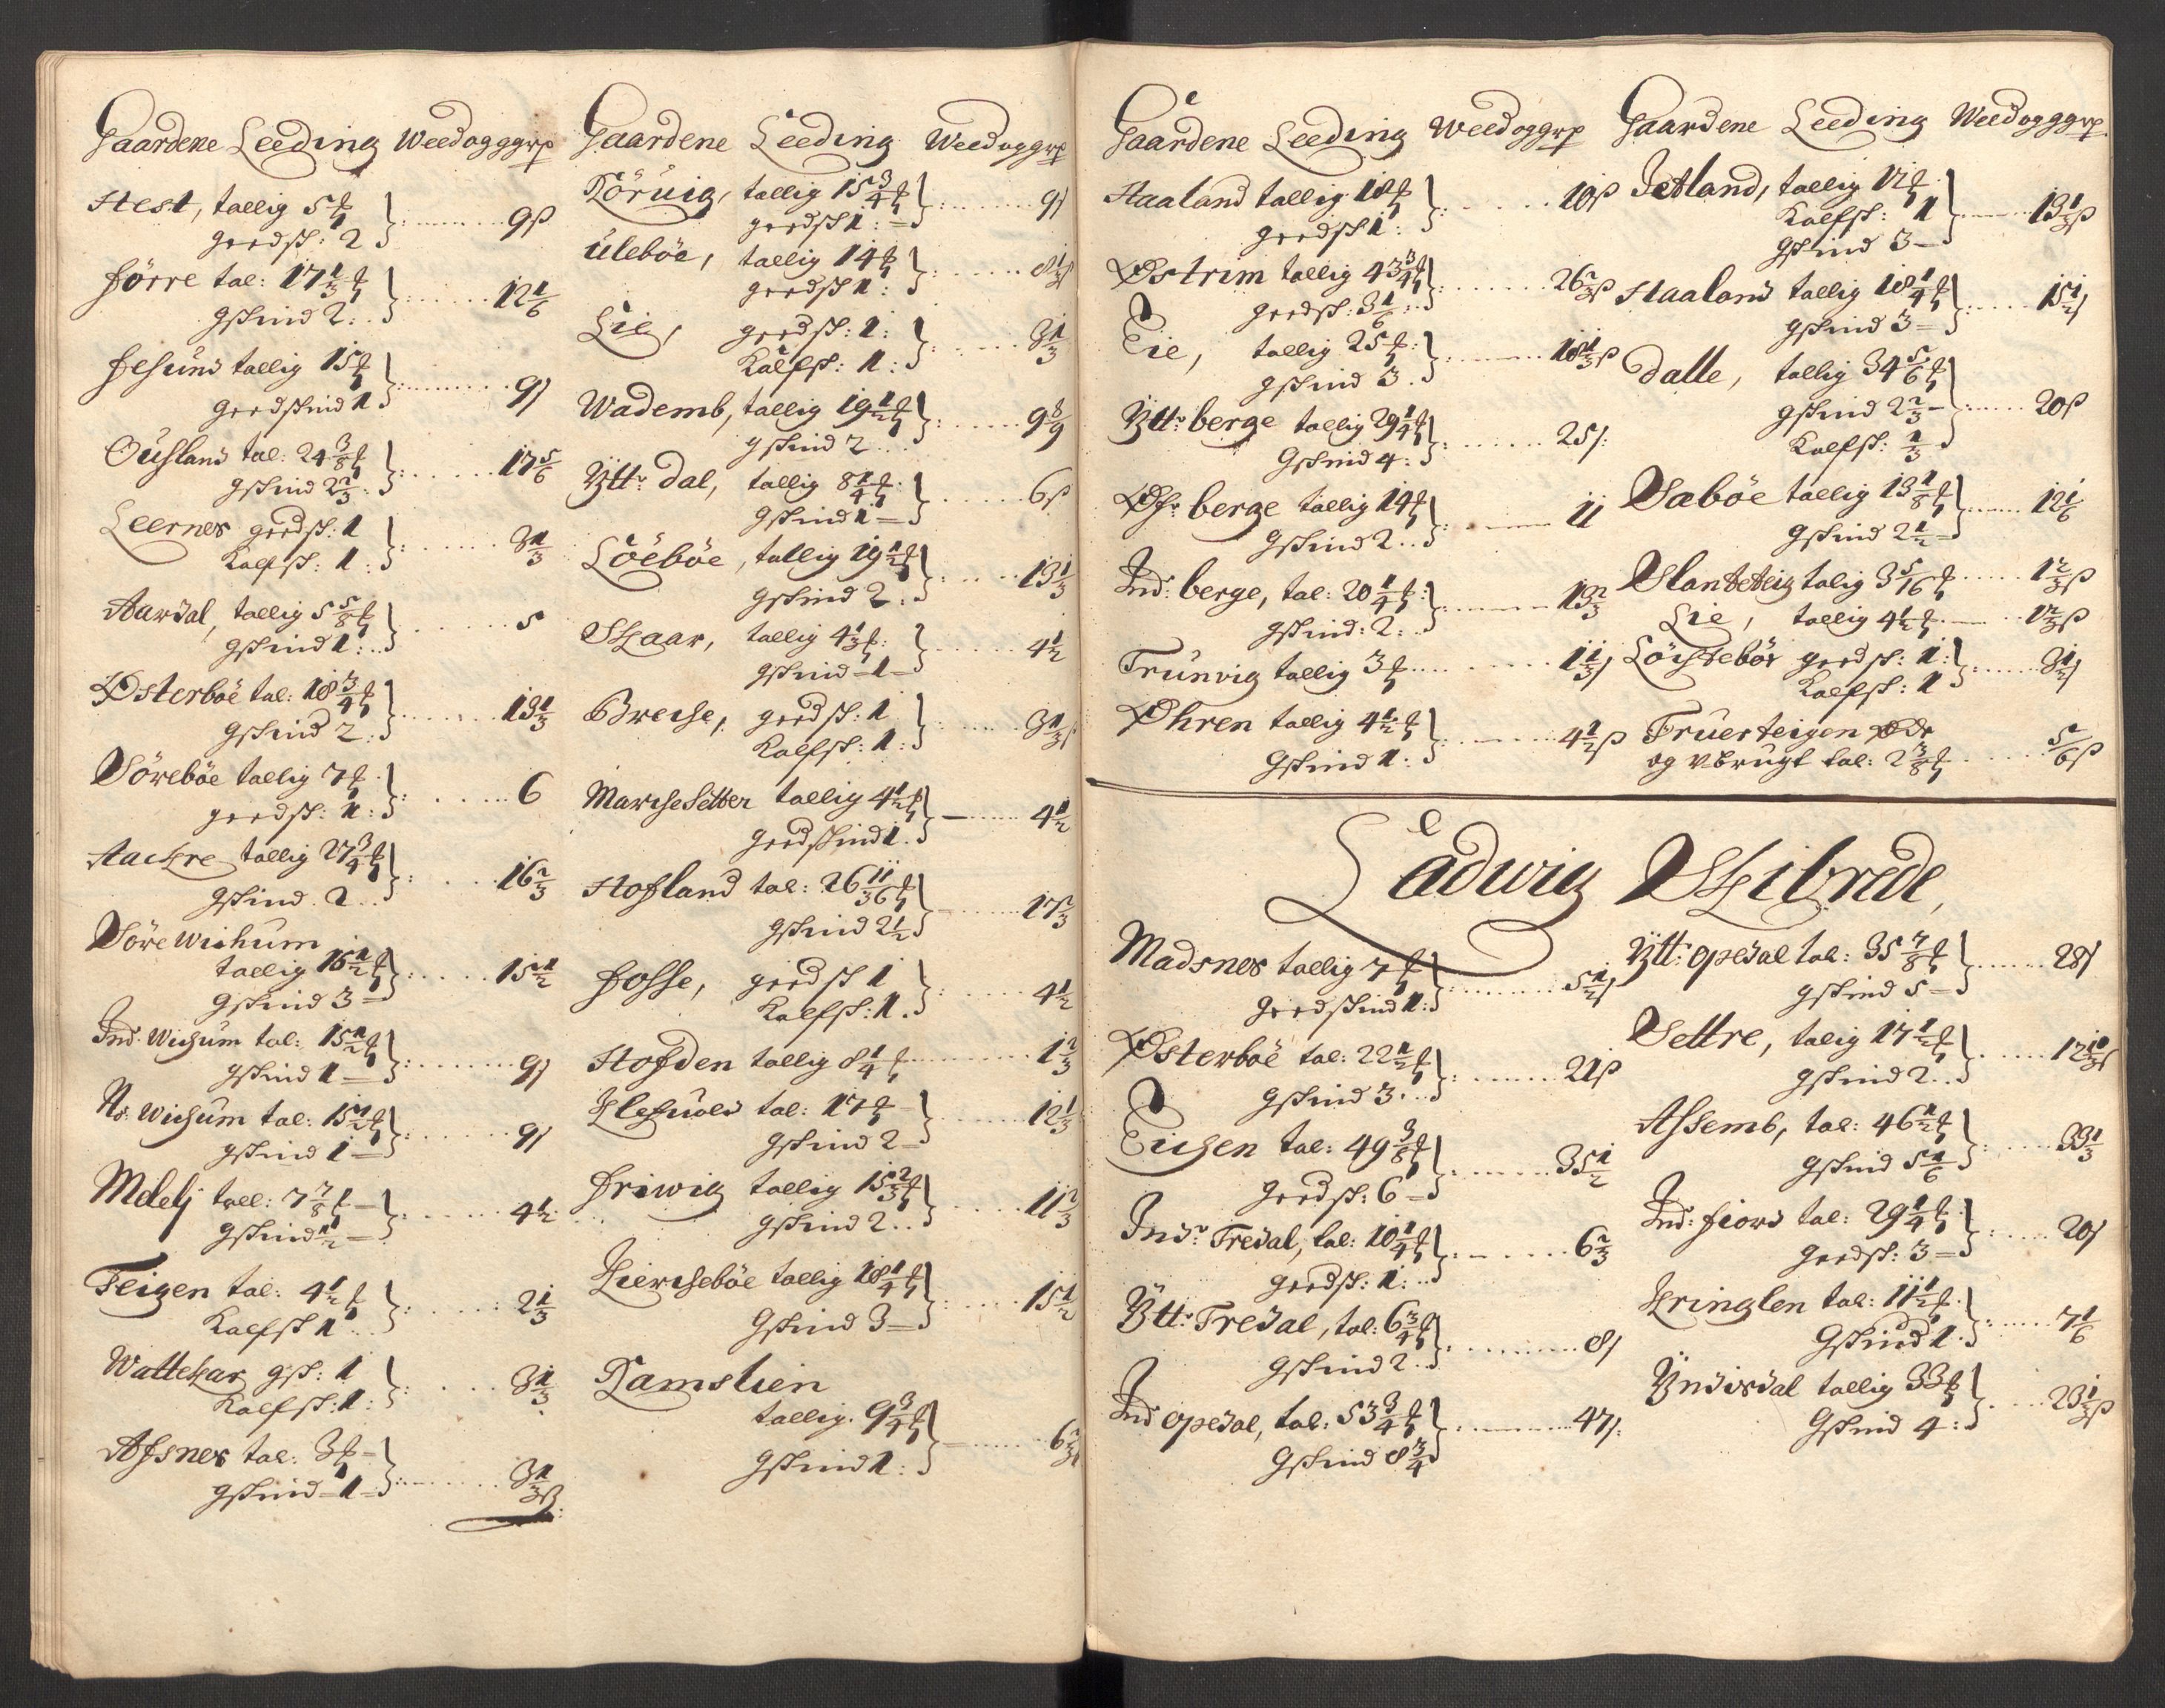 Gaardene Leeding Weedogggrp
Hest, tallig 5 ₰
geedsk: 2 } 9ß
Førre tal: 17 1/3 ₰
gskind 2 } 12 1/6
Jesund tallig 15 ₰
geedskind 1 } 9ß
Ousland tal: 24 3/8 ₰
gskind 2 2/3 } 17 5/6
Leernes geedsk: 1
Kalfsk: 1 } 3 1/3
Aardal, tallig 5 5/8 ₰
gskind 1 } 5
Østerboe tal: 18 3/4 ₰
gskind 2 } 13 1/3
Sörebøe tallig 7 ₰
geedsk: 1 } 6
Aackre tallig 27 3/4 ₰
gskind 2 } 16 2/3
Söre Wichum
tallig 16 1/2 ₰
gskind 3 } 15 1/2
Ind: Wichum tal: 15 1/2 ₰
gskind 1 } 9ß
N: Wichum tal: 15 1/2 ₰
gskind 1 } 9ß
Melelj tall: 7 7/8 ₰
gskind 1/2 } 4 1/2
Teigen tal: 4 1/2 ₰
Kalfsk 1 } 2 1/3
Wattekar gsk: 1
Kalfsk: 1 } 3 1/3
Assnes tal: 3 ₰
gskind 1 } 3 1/3 ß
Gaardene Leeding Weedoggrp
Rörvig, tallig 15 3/4 ₰
geedsk 1 } 9ß
Ulebøe, tallig 14 ₰
geedsk 1 } 8 1/3 ß
Lie, geedsk: 1
Kalfsk: 1 } 3 1/3
Wademb, tallig 19 1/2 ₰
gskind 2 } 9 8/9
Ytt: dal, tallig 8 1/4 ₰
gskind 1 } 6ß
Löebøe, tallig 19 1/2 ₰
gskind 2 } 13 1/3
Skaar, tallig 4 1/3 ₰
gskind 1 } 4 1/2
Brecke, geedsk: 1
Kalfsk: 1 } 3 1/3 ß
Marchesetter tallig 4 1/2 ₰
geedskind 1 } 4 1/2
Hofland tal: 26 11/36 ₰
gskind 2 1/2 } 17 2/3
Fosse, geedsk 1
Kalfsk: 1 } 4 1/2
Hofden tallig 8 1/4 ₰ 1 2/3
tal: 17 ₰
gskind 2 } 12 1/3
Friwig tallig 15 2/3 ₰
gskind 2 } 11 2/3
Kierchebøe tallig 18 1/4 ₰
Gskind 3 } 15 1/2
Ramslien
tallig 9 3/4 ₰
gskind 1 } 6 2/3 ß
Gaardene Leeding Weedoggrp
Haaland tallig 18 ₰
geedsk 1 } 10ß
Østrim tallig 43 3/4 ₰
geedsk: 3 1/6 } 26 2/3 ß
Eie, tallig 25 ₰
gskind 3 } 18 1/3 ß
Ytt: berge tallig 29 1/4 ₰
Gskind 4 } 25ß
Øfr berge tallig 14 ₰
Gskind 2 } 11
Ind: berge, tal: 20 1/4 ₰
gskind: 2 } 13 2/3
Trünvig tallig 3 ₰ 1 1/3 ß
Øhren tallig 4 1/2 ₰
Gskind 1 } 4 1/2 ß
Gaardene Leeding Weedogggrp
Jetland, tallig 17 ₰
Kalfsk: 1
Gskind 3 } 13 1/3 ß
Haaland tallig 18 1/4 ₰
gskind 3 } 15 1/2 ß
Dalle, tallig 34 5/6 ₰
gskind 2 2/3
Kalfsk: 1/3 } 20ß
Sæbøe tallig 13 1/8 ₰
gskind 2 1/2 } 12 1/6
Slanteteig talig 3 5/16 ₰ 1 2/3 ß
Lie, tallig 4 1/2 ₰ 1 2/3 ß
geedsk: 1
Kalfsk: 1 } 3 1/2 ß
Fruerteigen øde
og vbrugt tal: 2 3/8 ₰ 5/6 ß
Ladwig Skibrede,
Madsnes tallig 7 ₰
geedskind 1 } 5 1/2 ß
Østerboe tal: 22 1/2 ₰
gskind 3 } 21ß
Eichen tal: 49 3/8 ₰
Geedsk: 6 } 35 1/2
Ind: Tredal, tal: 10 1/4 ₰
geedsk: 1 } 6 2/3
Ytt: Tredal, tal: 6 3/4 ₰
gskind 2 } 8ß
Ind opedal, tal: 53 3/4 ₰
Gskind 8 3/4 } 47ß
Ytt: opedal tal: 35 7/8 ₰
gskind 5 } 28ß
Settre, talig 17 1/2 ₰
gskind 2 } 12
Assemb, tal: 46 1/2 ₰
gskind 5 1/6 } 33 1/3
Ind: fiord tal: 29 1/4 ₰
geedsk: 3 } 20ß
Kringlen tal: 11 1/2 ₰
Gskind 1 } 7 1/6
Yndisdal tallig 33 ₰
Gskind 4 } 23 1/3 ß